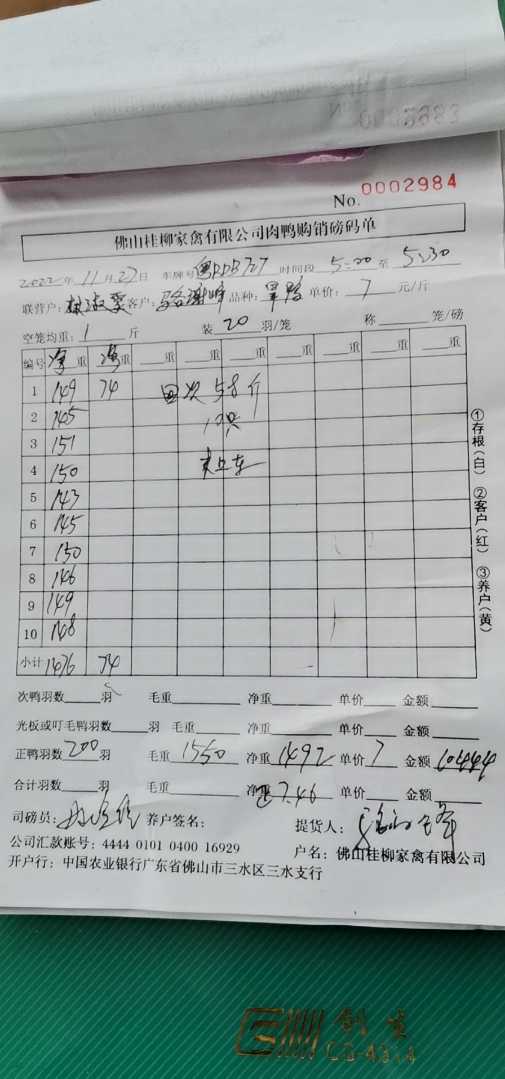 No. 0002984
佛山桂柳家禽有限公司肉鸭购销磅码单
2022年11月27日 车牌号 时间段 5:00 至 5:30
联营户: 客户: 品种: 单价: 7 元/斤
空笼均重: 1 斤 装 20 羽/笼 称 笼/磅
编号 重 重 重 重 重 重 重 重
1 149 74 次 58斤
2 145
3 151
4 150 未上车
5 143
6 145
7 150
8 146
9 149
10 148
小计 1476 74
次鸭羽数 羽 毛重 净重 单价 金额
光板或叮毛鸭羽数 羽 毛重 净重 单价 金额
正鸭羽数 200 羽 毛重 1550 净重 1492 单价 7 金额 10444
合计羽数 羽 毛重 净重 7.46 单价 金额
司磅员: 养户签名: 提货人:
公司汇款账号: 4444 0101 0400 16929 户名: 佛山桂柳家禽有限公司
开户行: 中国农业银行广东省佛山市三水区三水支行
①存根(白) ②客户(红) ③养户(黄)
创
CD-4314